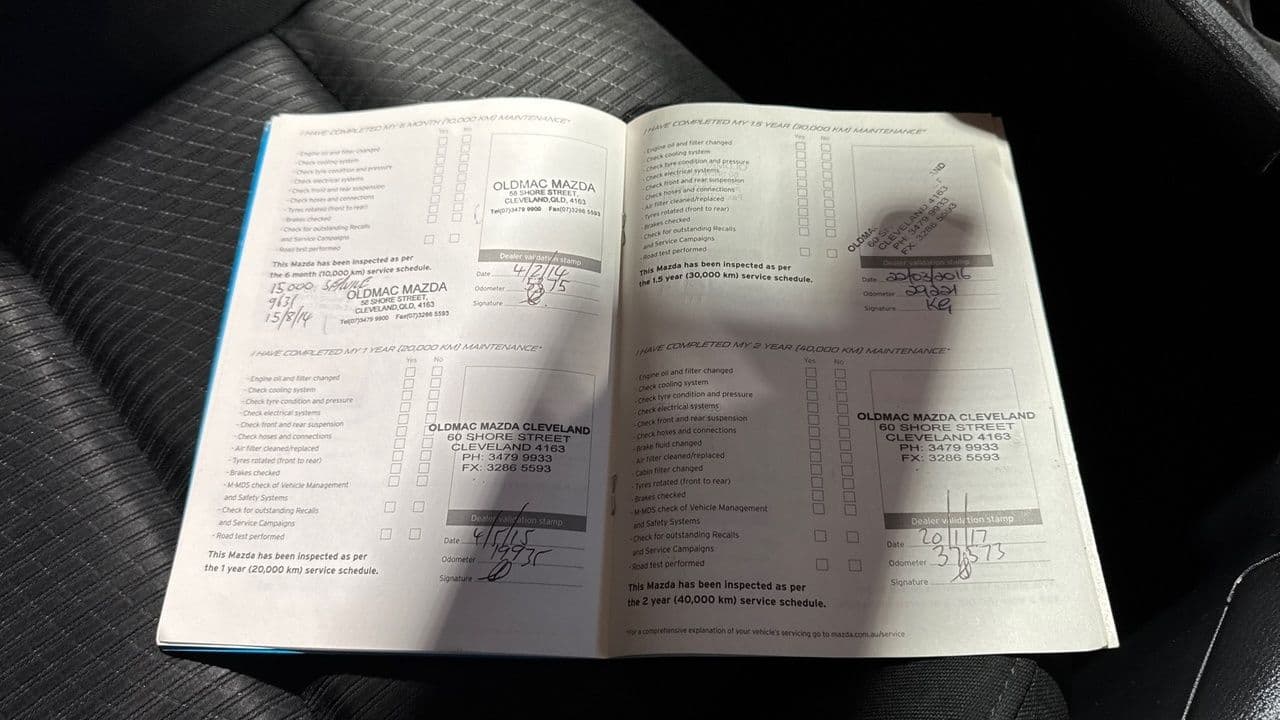 I HAVE COMPLETED MY 6 MONTH (10,000 KM) MAINTENANCE*
Yes No
- Engine oil and filter changed
- Check cooling system
- Check tyre condition and pressure
- Check electrical systems
- Check front and rear suspension
- Check hoses and connections
- Tyres rotated (front to rear)
- Brakes checked
- Check for outstanding Recalls
and Service Campaigns
- Road test performed
This Mazda has been inspected as per
the 6 month (10,000 km) service schedule.
OLDMAC MAZDA
58 SHORE STREET,
CLEVELAND,QLD, 4163
Tel(07)3479 9900 Fax(07)3286 5593
Dealer validation stamp
Date 4/2/14
Odometer
Signature
15,000 SERVICE
9631
15/8/14
OLDMAC MAZDA
58 SHORE STREET,
CLEVELAND,QLD, 4163
Tel(07)3479 9900 Fax(07)3286 5593
I HAVE COMPLETED MY 1 YEAR (20,000 KM) MAINTENANCE*
Yes No
- Engine oil and filter changed
- Check cooling system
- Check tyre condition and pressure
- Check electrical systems
- Check front and rear suspension
- Check hoses and connections
- Air filter cleaned/replaced
- Tyres rotated (front to rear)
- Brakes checked
- M-MDS check of Vehicle Management
and Safety Systems
- Check for outstanding Recalls
and Service Campaigns
- Road test performed
This Mazda has been inspected as per
the 1 year (20,000 km) service schedule.
OLDMAC MAZDA CLEVELAND
60 SHORE STREET
CLEVELAND 4163
PH: 3479 9933
FX: 3286 5593
Dealer validation stamp
Date 4/5/15
Odometer 19935
Signature
I HAVE COMPLETED MY 1.5 YEAR (30,000 KM) MAINTENANCE*
Yes No
- Engine oil and filter changed
- Check cooling system
- Check tyre condition and pressure
- Check electrical systems
- Check front and rear suspension
- Check hoses and connections
- Air filter cleaned/replaced
- Tyres rotated (front to rear)
- Brakes checked
- Check for outstanding Recalls
and Service Campaigns
- Road test performed
This Mazda has been inspected as per
the 1.5 year (30,000 km) service schedule.
CLEVELAND 4163
PH: 3479 9933
FX: 3286 5593
Dealer validation stamp
Date 22/03/2016
Odometer 29221
Signature KG
I HAVE COMPLETED MY 2 YEAR (40,000 KM) MAINTENANCE*
Yes No
- Engine oil and filter changed
- Check cooling system
- Check tyre condition and pressure
- Check electrical systems
- Check front and rear suspension
- Check hoses and connections
- Brake fluid changed
- Air filter cleaned/replaced
- Cabin filter changed
- Tyres rotated (front to rear)
- Brakes checked
- M-MDS check of Vehicle Management
and Safety Systems
- Check for outstanding Recalls
and Service Campaigns
- Road test performed
This Mazda has been inspected as per
the 2 year (40,000 km) service schedule.
OLDMAC MAZDA CLEVELAND
60 SHORE STREET
CLEVELAND 4163
PH: 3479 9933
FX: 3286 5593
Dealer validation stamp
Date 20/1/17
Odometer 37,573
Signature
*For a comprehensive explanation of your vehicle's servicing go to mazda.com.au/service